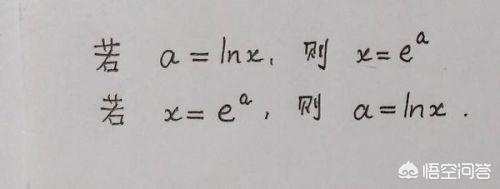 若 a = lnx, 则 x = eᵃ
若 x = eᵃ, 则 a = lnx.
悟空问答